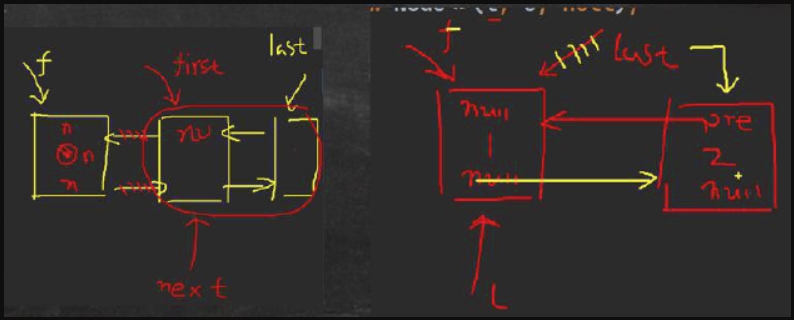 f
first
last
n
n
n
nu
next
f
last
null
1
null
pre
2
null
L